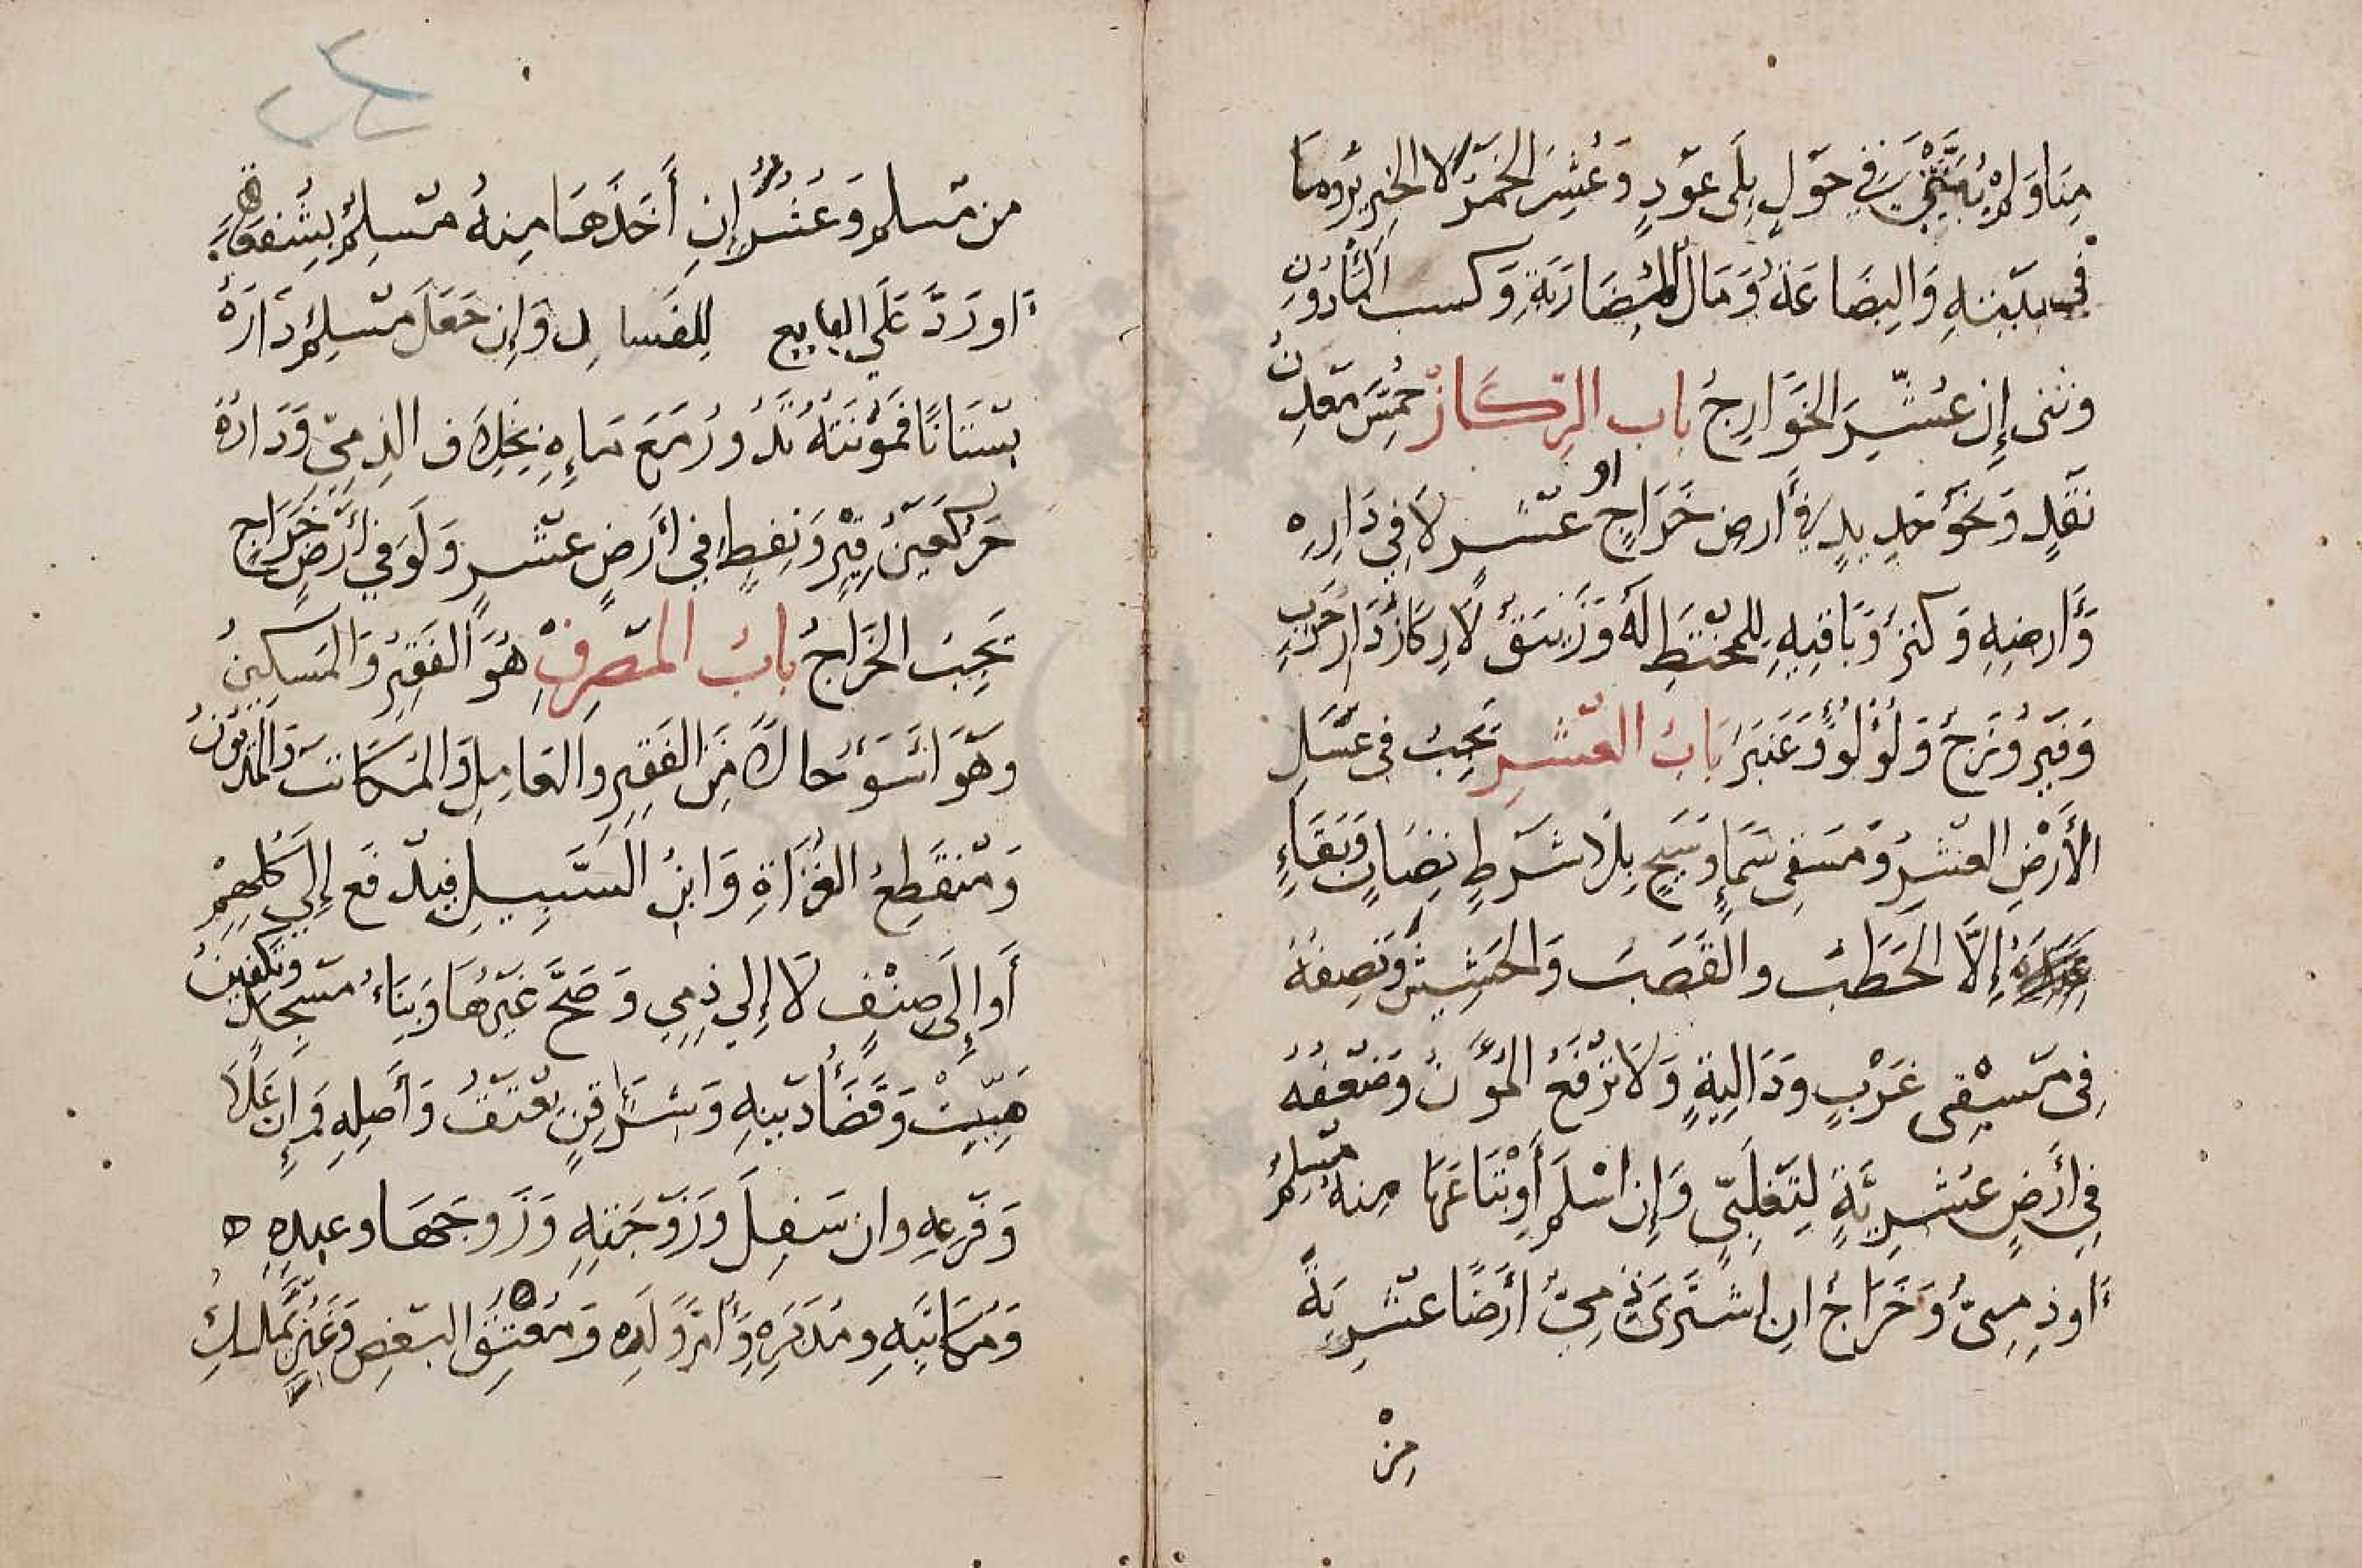 منا ولم يثن في حول بلى عود وعشر الخمر لا الخنزير وما
في بيته والبضاعة ومال المضاربة وكسب المأذون
وثنى إن عشر الخوارج باب الركاز خمس معدن
نقد ونحو حديد في أرض خراج او عشر لا في داره
وارضه وكنز وباقيه للمختط له وزيبق لا ركاز دار حرب
وفيروزج ولؤلؤ وعنبر باب العشر تجب في عسل
الأرض العشر ومسقى سماء وسيح بلا شرط نصاب وبقاء
إلا الحطب والقصب والحشيش ونصفه
في مسقى غرب ودالية ولا ترفع المؤن وضعفه
في أرض عشرية لتغلبي وإن اسلم أو ابتاعها منه مسلم
او ذمي وخراج ان اشترى ذمي أرضا عشرية
من
من مسلم وعشر إن أخذها منه مسلم بشفعة
او رد على البايع للفساد وإن جعل مسلم داره
بستانا فمؤنته تدور مع مائه بخلاف الذمي وداره
حر كعين قير ونفط في أرض عشر ولو في أرض خراج
تجب الخراج باب المصرف هو الفقير والمسكين
وهو اسوء حالا من الفقير والعامل والمكاتب والمديون
ومنقطع الغزاة وابن السبيل فيدفع إلى كلهم
أو إلى صنف لا إلى ذمي وصح غيرها وبناء مسجد وتكفين
ميت وقضاء دينه وشراء قن يعتق وأصله وإن علا
وفرعه وان سفل وزوجته وزوجها وعبده
ومكاتبه ومدبره وأم ولده ومعتق البعض وغني بملك